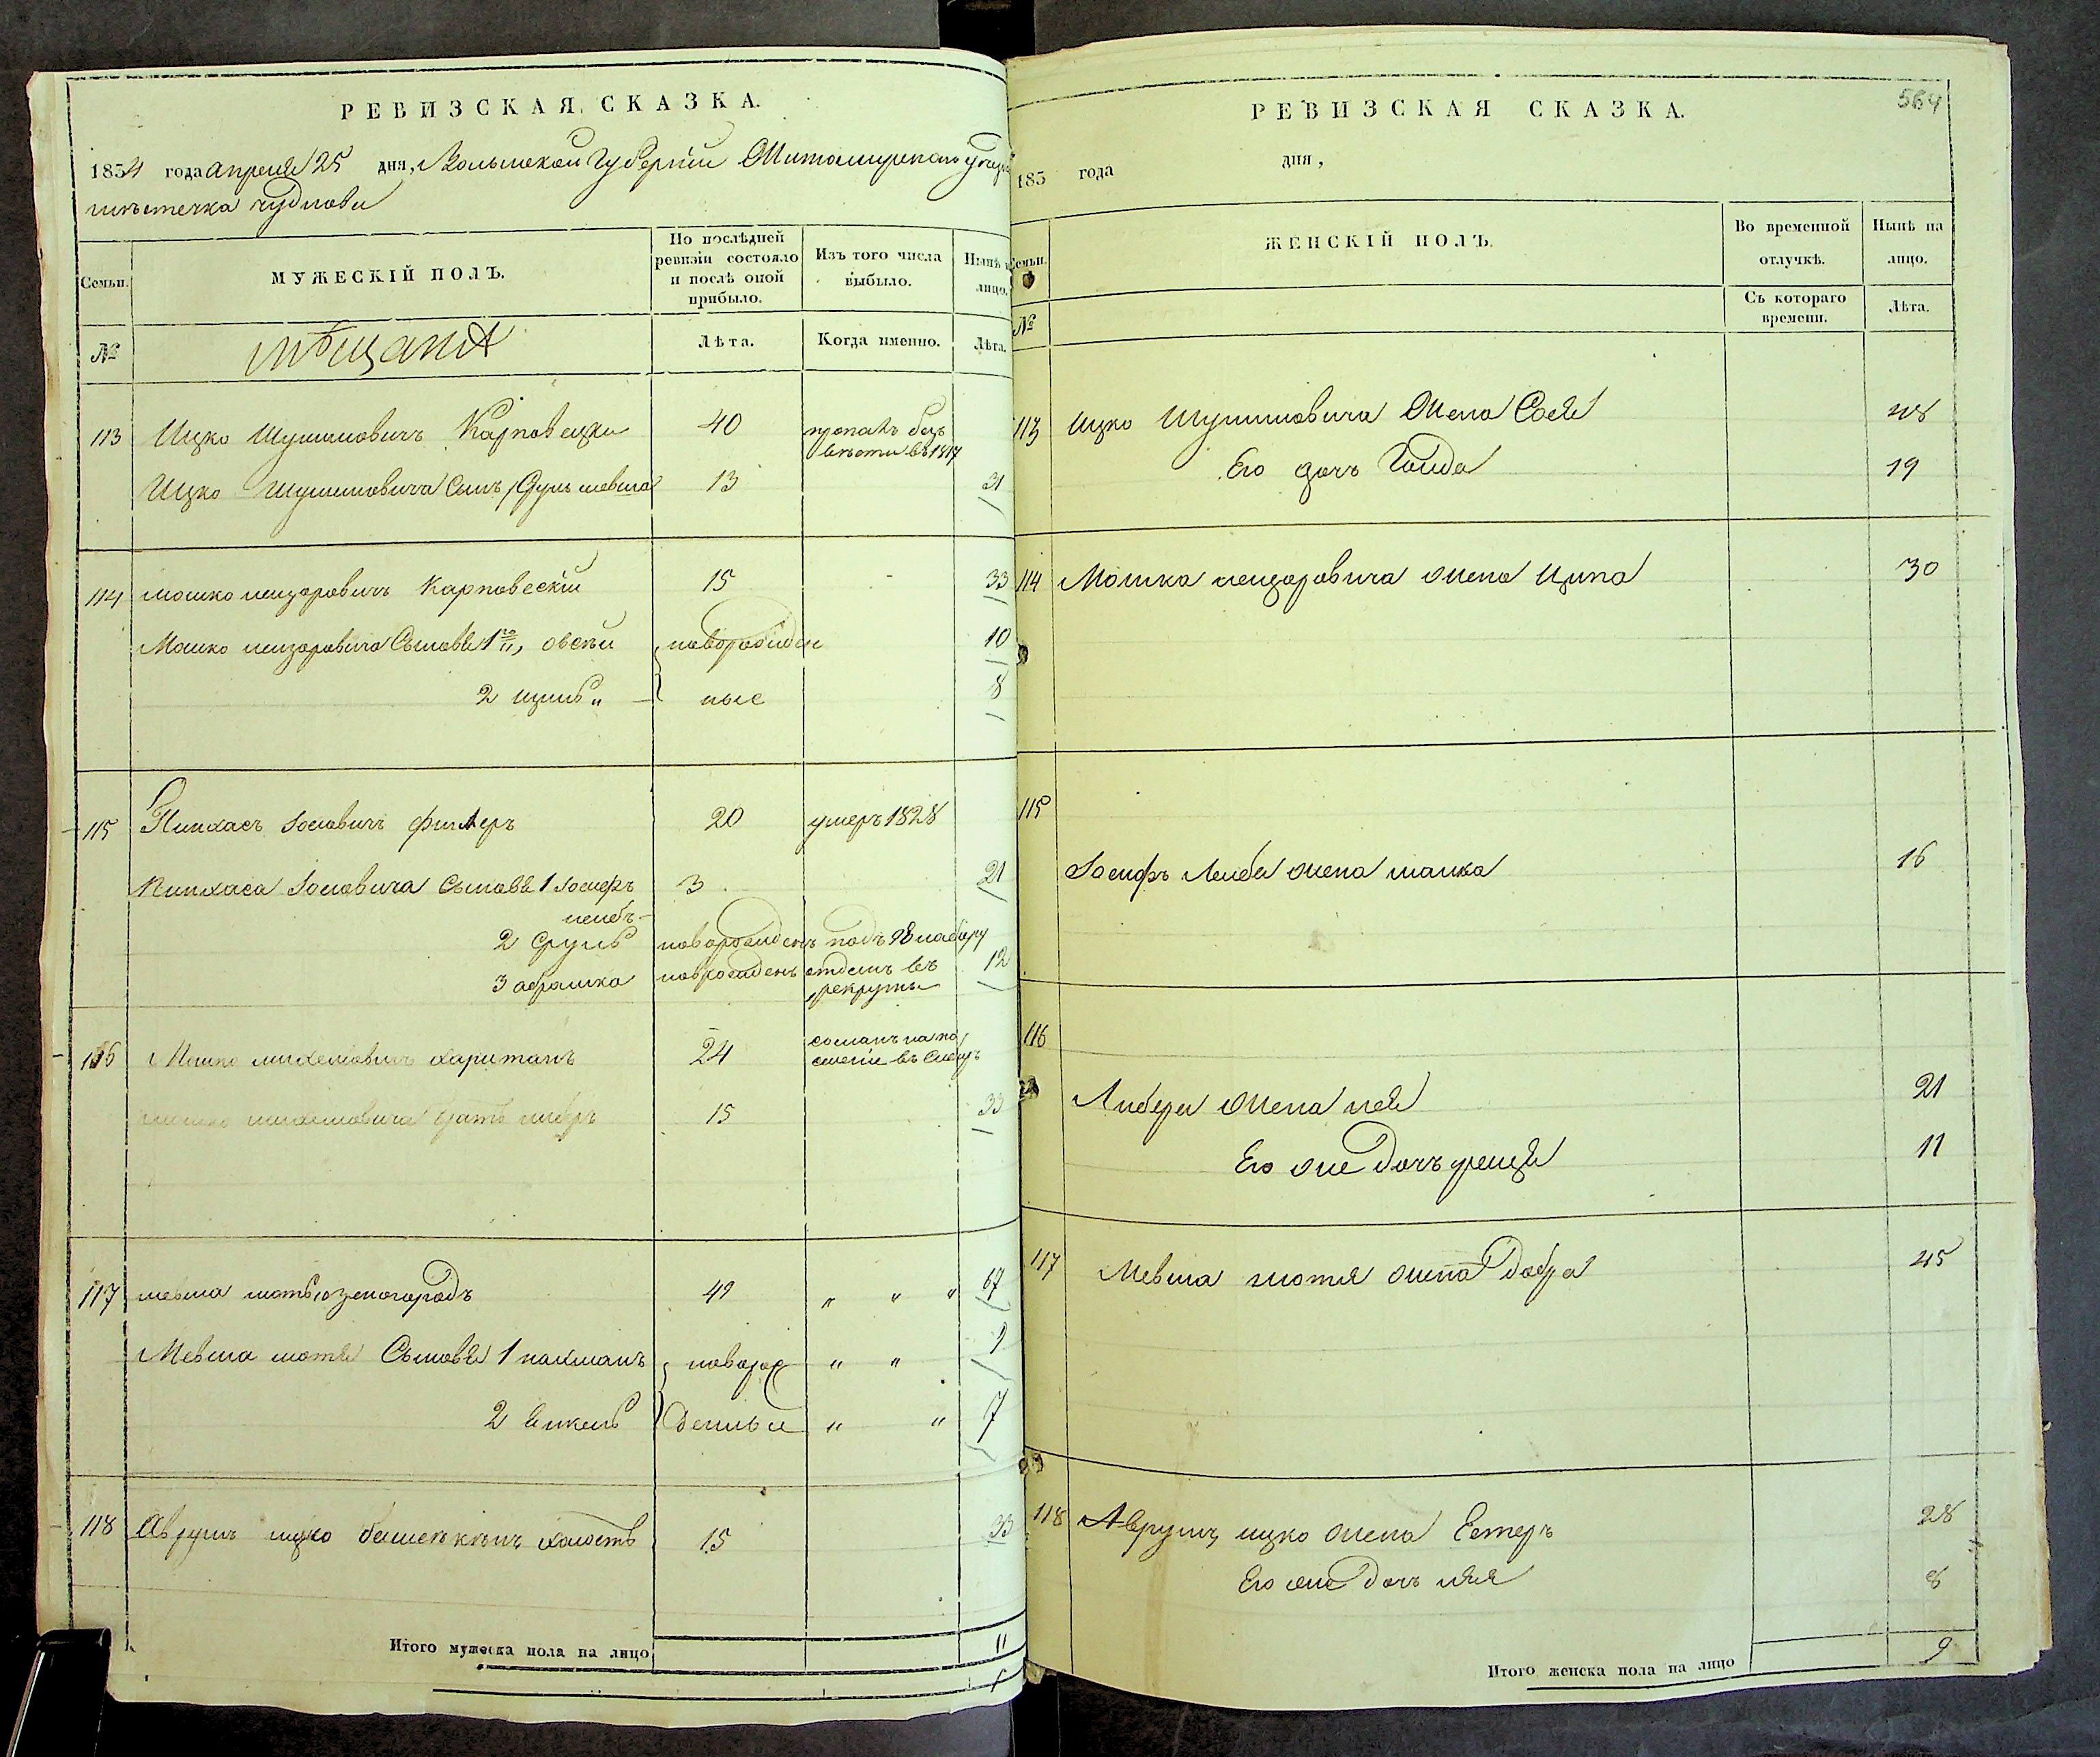 РЕВИЗСКАЯ СКАЗКА.
1854 года апреля 25 дня, Волынской Губернiи Житомирскаго уезда
местечка чуднова
Семьи.
МУЖЕСКІЙ ПОЛЪ.
По послѣдней ревизіи состояло и послѣ оной прибыло.
Изъ того числа выбыло.
Нынѣ на лицо.
№
мѣщанъ
Лѣта.
Когда именно.
Лѣта.
113 Ицко Шулимовичъ Карповецки 40 пропалъ безъ
вѣсти въ 18
Ицко Шулимовича Сынъ, Сруль мевша 13 31
114 мошко лейзоровичъ Карповескiй 15 33
Мошко лейзоровича Сыновья 1й, овсей новорожден 10
2 ицик" ные 8
115 Пинхасъ Іосиовичъ фишеръ 20 умеръ 1828
Пинхаса Іосиовича Сыновья 1 Іосифъ 3 21
лейбъ
2 Сруль новорожденъ
3 абрашко новрожденъ отданъ въ 12
рекруты
116 Мошко михелиовичъ хаританъ 24 сосланъ на по
сленiе въ Сибирь
михелиовича братъ либеръ 15 33
117 мевша моть 49 " " " 67
Мевша мотя Сыновья 1 нахманъ новорож " " 9
2 денные " " 7
118 Аврумъ ицко 15 33
Итого мужеска пола на лицо 11
РЕВИЗСКАЯ СКАЗКА.
564
185 года дня,
Семьи.
ЖЕНСКІЙ ПОЛЪ.
Во временной отлучкѣ.
Нынѣ на лицо.
№
Съ котораго времени.
Лѣта.
113 Ицко Шулимовича Жена Сося 48
Его дочъ Гоида 19
114 Мошка лейзоровича жена Ципа 30
115
Іосифъ Лейба жена малка 16
116
Либера жена лея 21
Его же дочъ 11
117 Мевша мотя жена Добра 45
118 Аврумъ ицко жена Естеръ 28
Его же дочъ 8
Итого женска пола на лицо 9